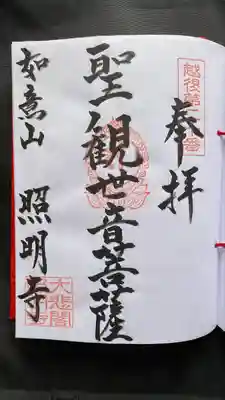 奉拝
越後第十九番
聖観世音菩薩
如意山 照明寺
大悲閣